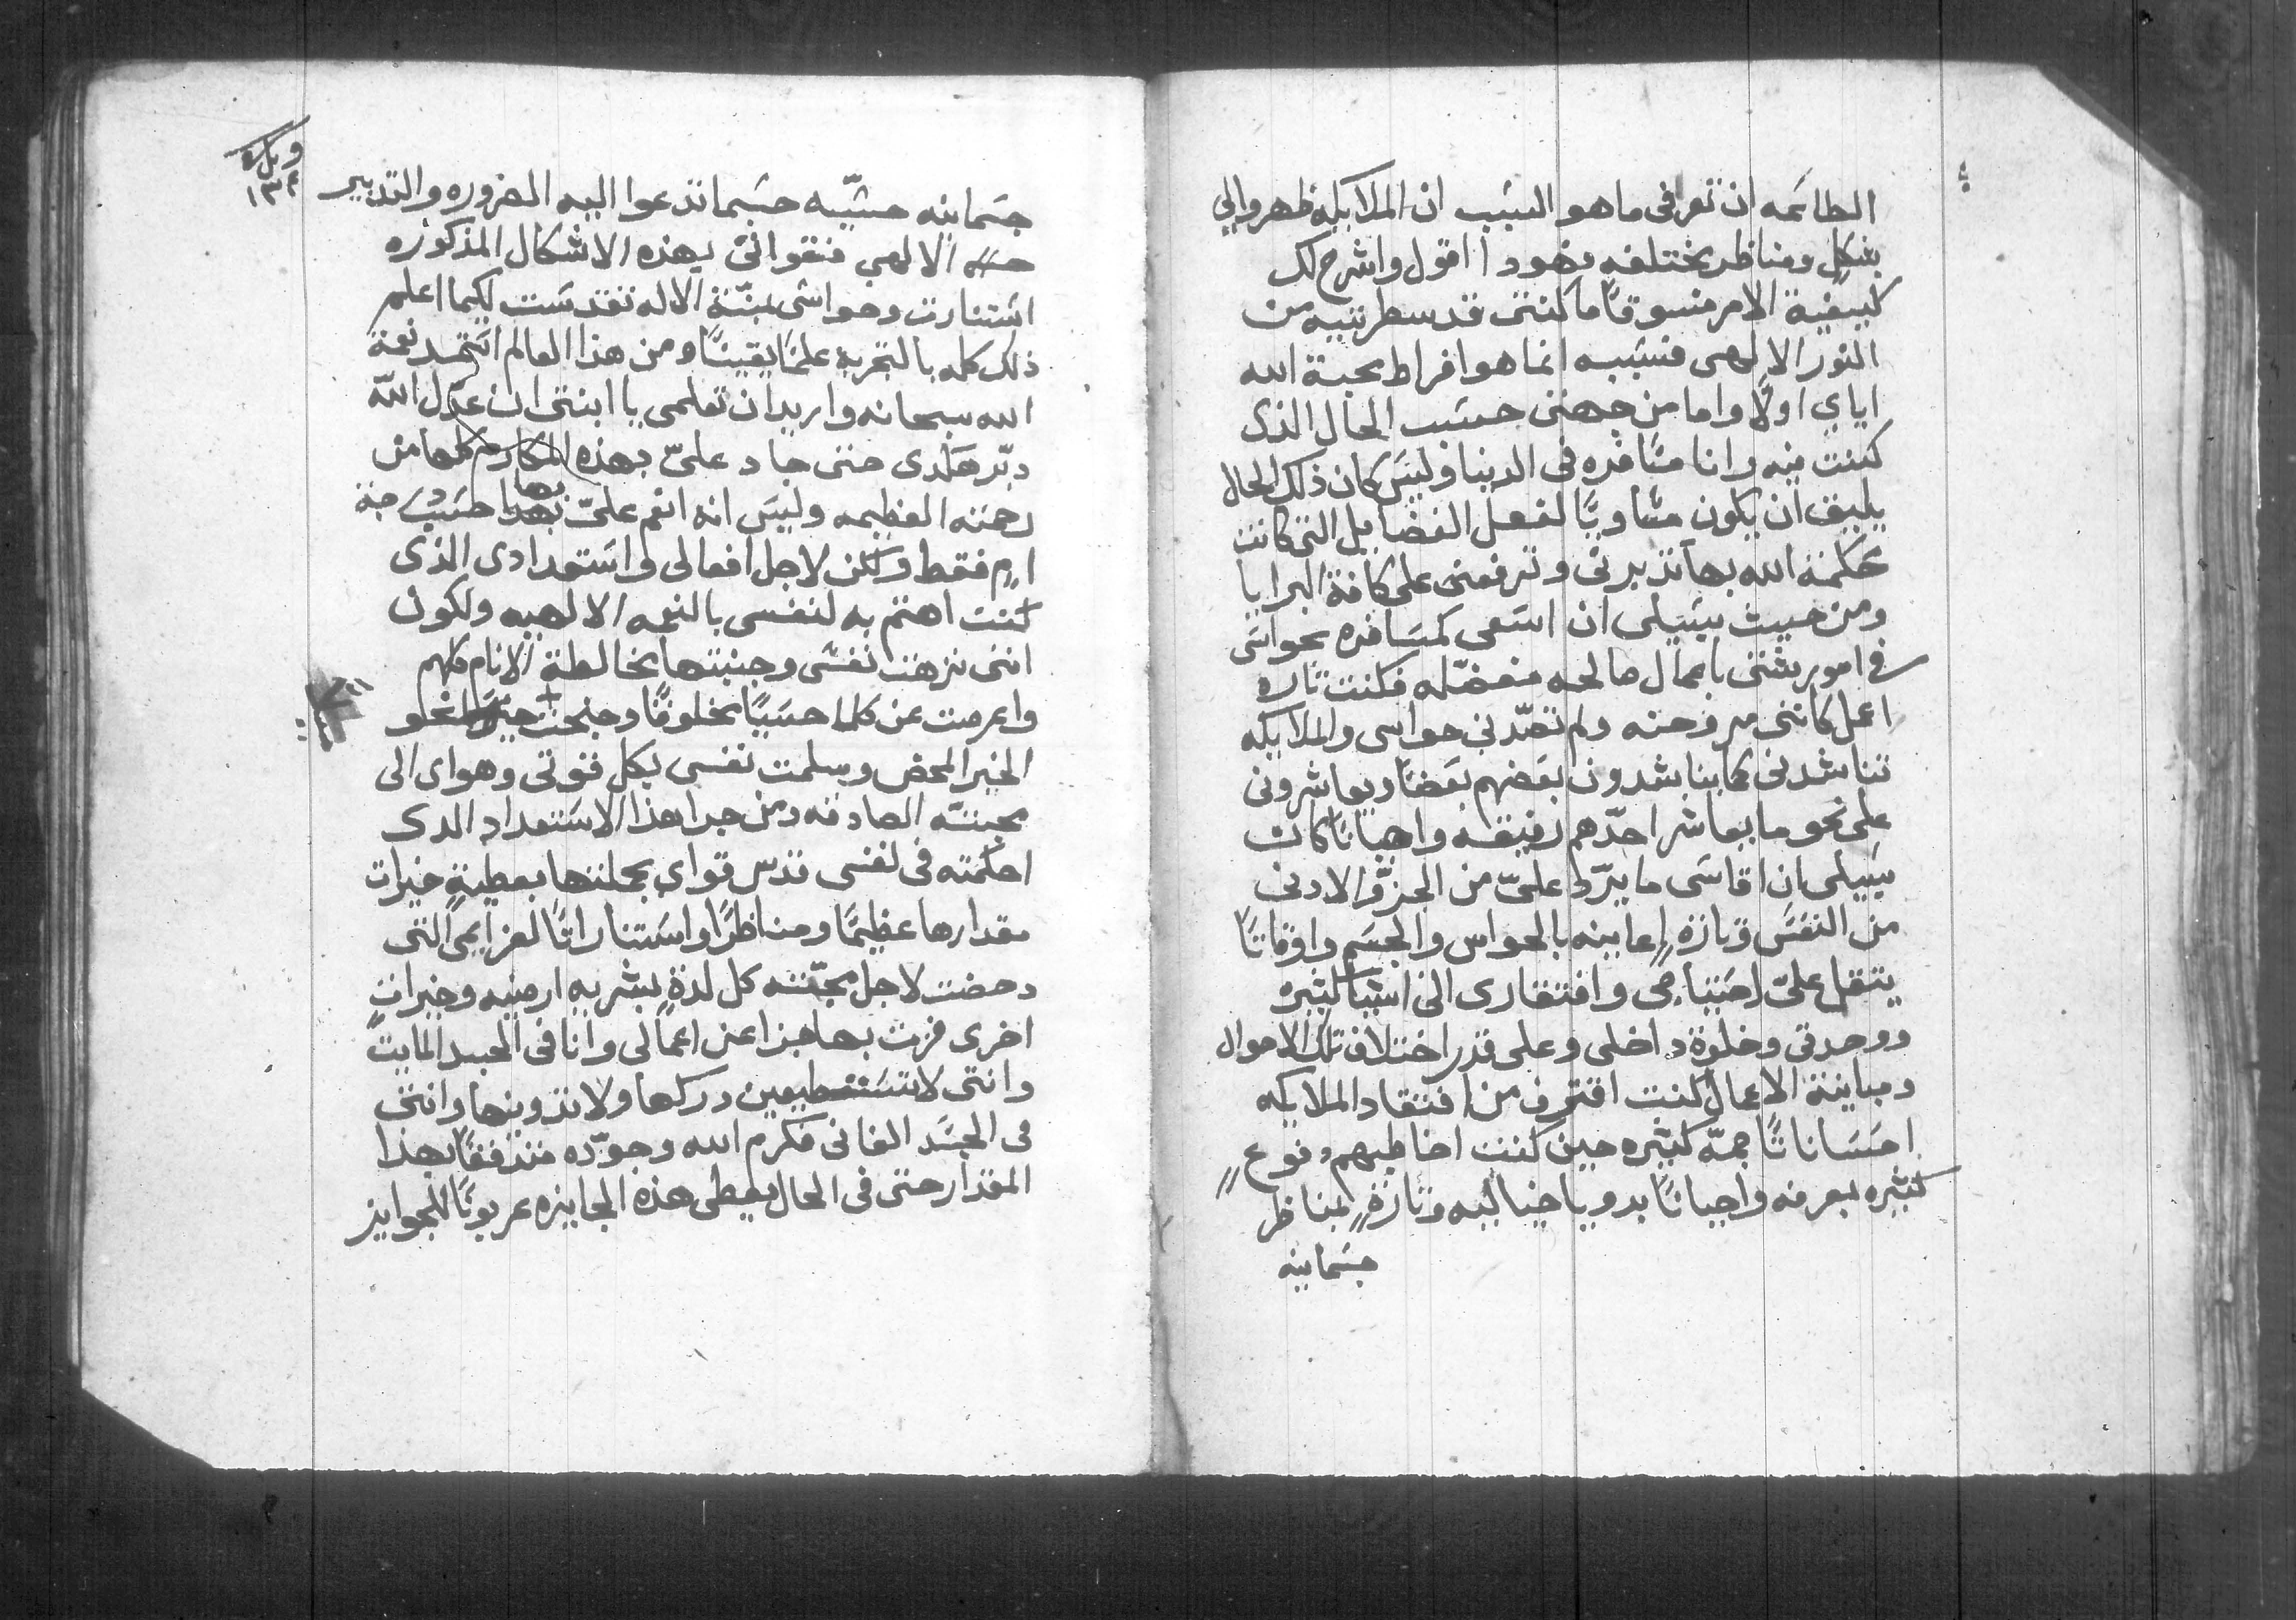 الطائعه ان تعرفى ما هو السبب ان الملايكه ظهروا لي
بشكلٍ ومناظر مختلفه فهودا اقول واشرح لك
كيفية الامر منسوقًا ما كنتى قد سطرتيه من
النور الالهى فسببه انما هو افراط محبة الله
اياي اولًا واما من جهتى حسب الحال الذى
كنت فيه وانا مسافره فى الدنيا وليس كان ذلك الحال
يليق ان يكون متساويًا لفعل الفضايل التى كانت
حكمة الله بها تدبرنى وترفعنى على كافة البرايا
ومن حيث سبيلى ان اسعى كمسافره بحواسى
فى امور شتى باعمال صالحه مفضّله فكنت تاره
اعمل كاننى مروحنه ولم تصّدنى حواسى والملايكه
تناشدنى كما يناشدون بعضهم بعضًا ويعاشرونى
على نحو ما يعاشر احدّهم رفيقه واحيانًا كان
سبيلى ان اقاسى ما يرّد علىّ من الجزّو الادنى
من النفس وتارةٍ اعاينه بالحواس والجسم واوقاتًا
يتقل علىّ احتياجى وافتقارى الى اشيا كثيره
ووحدتى وخلوة داخلى وعلى قدر اختلاف تلك الاحوال
ومباينة الاعمال كنت اقترف من افتقاد الملايكه
احساناتًا جمّه كثيره حين كنت اخاطبهم فنوعٍ
كثيره بمعرفه واحيانًا برويا خياليه وتارةٍ بمناظر
جسمانيه
وبركه
١٣٤
جسمانيه حسّيه حسبما تدعوا اليه الضروره والتدبير
الالهى فتقواتى بهذه الاشكال المذكوره
استنارت وحواسى بمنّة الاله تقدست لكيما اعلم
ذلك كله بالتجربه علمًا يقينًا ومن هذا العالم استمد نعمة
الله سبحانه واريد ان تعلمى يا ابنتى ان عدّل اللّه
دبّر هكدى حتى جاد علىّ بهذه المكارم كلها من
رحمته العظيمه وليس انه انعم علىّ بها حسب جنة
امٍ فقط ولكن لاجل افعالى واستعدادى الذى
كنت اهتم به لنفسى بالنعمه الالهيه ولكون
اننى نزهت نفسى وجنبتها مخالطة الانام كلهم
واعرضت عن كلما حسبًا مخلوقًا وجنحت نحو
الخير المحض وسلمت نفسى بكل قوتى وهواى الى
محبتّه الصادقه ومن جرا هذا الاستعداد الدى
احكمته فى نفسى قدس قواي بجملتها بعطيةٍ خيرات
مقدارها عظيمًا ومناظرًا واستناراتًا لعزايمى التى
رحضت لاجل محبّته كل لذةٍ بشريه ارضيه وخيراتٍ
اخرى فزت بها جزا عن اعمالى وانا فى الجسد المايت
وانتى لا تستطيعين دركها ولا تدوينها وانتى
فى الجسد الفانى فكرم الله وجوّده متدفقًا بهذا
المقدار حتى فى الحال يعطى هذه الجايزه عربونًا للجوايز